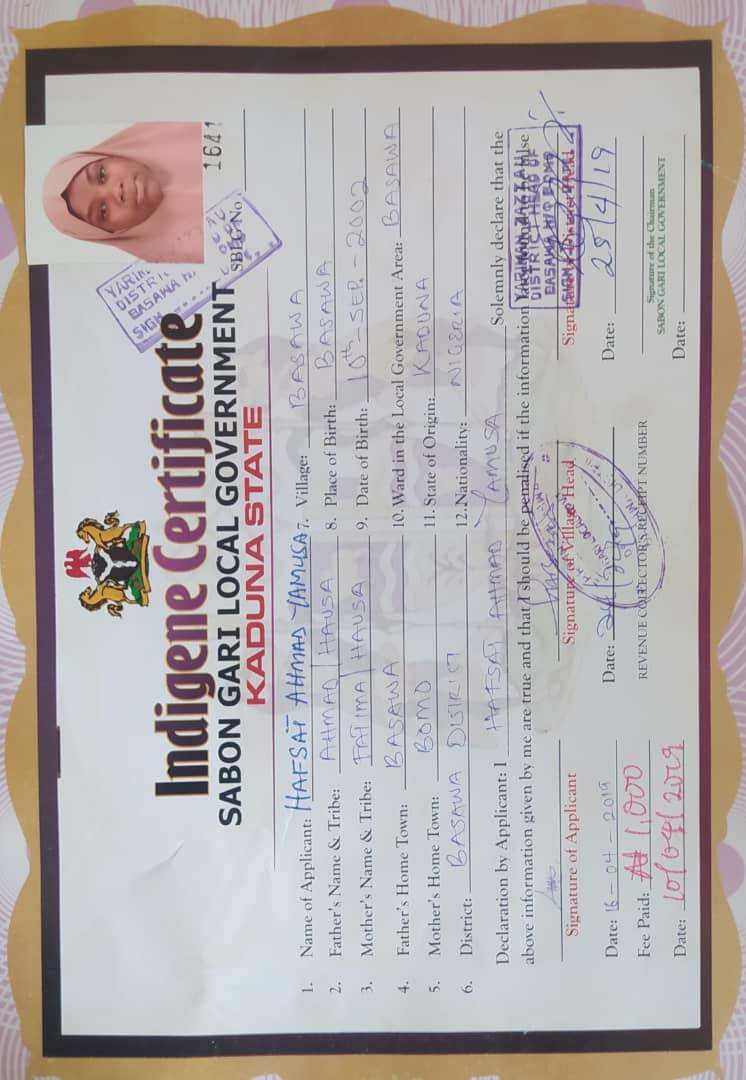 Indigene Certificate
SABON GARI LOCAL GOVERNMENT
KADUNA STATE
SBLG No. 1641
YARIM
DISTRI
BASAWA H
SIGN
1. Name of Applicant: HAFSAT AHMAD YAMUSA
2. Father's Name & Tribe: AHMAD / HAUSA
3. Mother's Name & Tribe: FATIMA / HAUSA
4. Father's Home Town: BASAWA
5. Mother's Home Town: BOMO
6. District: BASAWA DISTRICT
7. Village: BASAWA
8. Place of Birth: BASAWA
9. Date of Birth: 10th - SEP - 2002
10. Ward in the Local Government Area: BASAWA
11. State of Origin: KADUNA
12. Nationality: NIGERIA
Declaration by Applicant: I HAFSAT AHMAD YAMUSA Solemnly declare that the
above information given by me are true and that I should be penalised if the information false
YARIMAN ZAZZAU
DISTRICT HEAD OF
BASAWA H/Q BOMO
SIGN
Signature of Applicant
Signature of Village Head
Signature of District Head
Date: 16-04-2019
Date:
Date: 25/4/19
Fee Paid: ₦ 1,000
REVENUE COLLECTOR'S RECEIPT NUMBER
Signature of the Chairman
SABON GARI LOCAL GOVERNMENT
Date: 10/04/2019
Date: